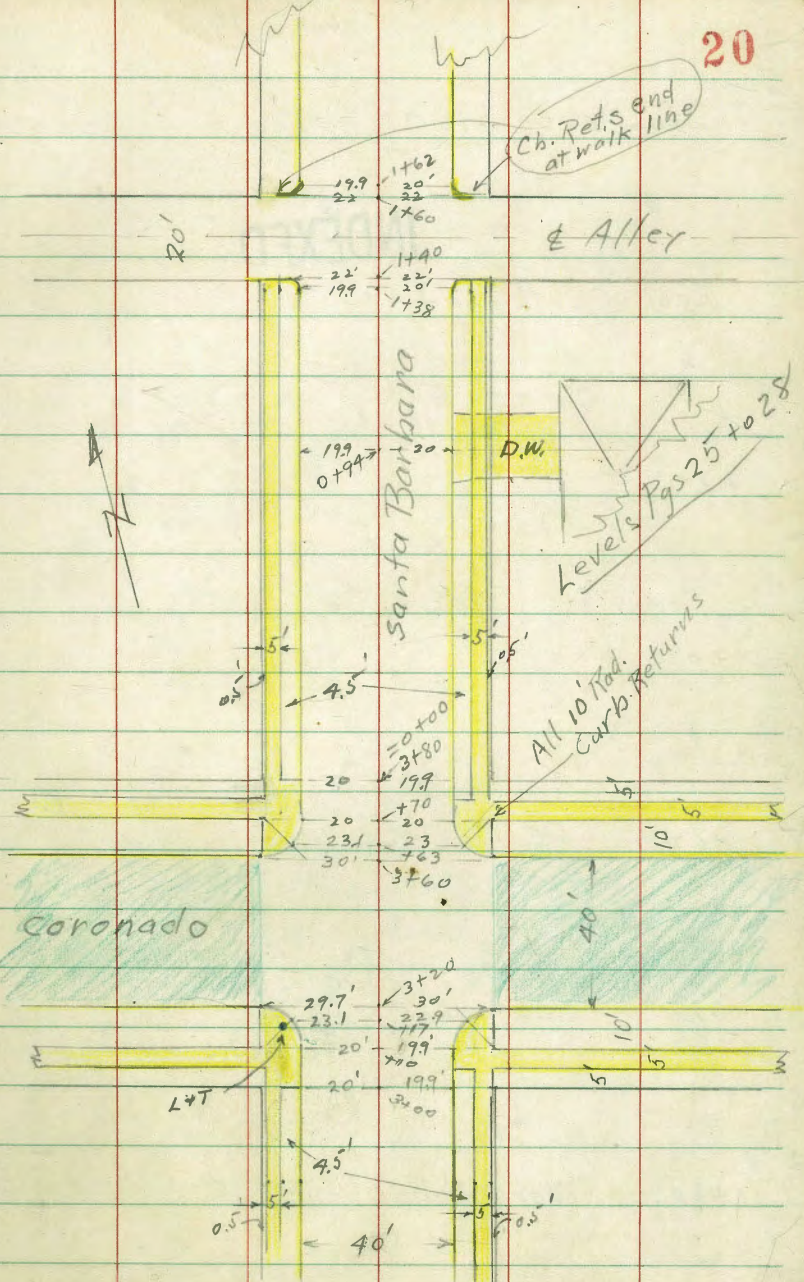 20
Cb. Ret.s end
at walk line
1+62
19.9 20'
22 22
1+60
20'
₵ Alley
1+40
22' 22'
19.9 20'
1+38
Santa Barbara
19.9 20 D.W.
0+94
Levels Pgs 25 to 28
5' 5'
0.5' 0.5'
4.5'
All 10' Rad.
Curb. Returns
=0+00
3+80
20 19.9
5'
+70
20 20
5'
10'
23.1 23
30' +63
3+60
Coronado
40'
3+20
29.7' 30'
23.1 22.9
+17
10'
20' 19.9'
+10
5'
20' 19.9'
5'
3+00
L+T
4.5'
5' 5'
0.5' 0.5'
40'